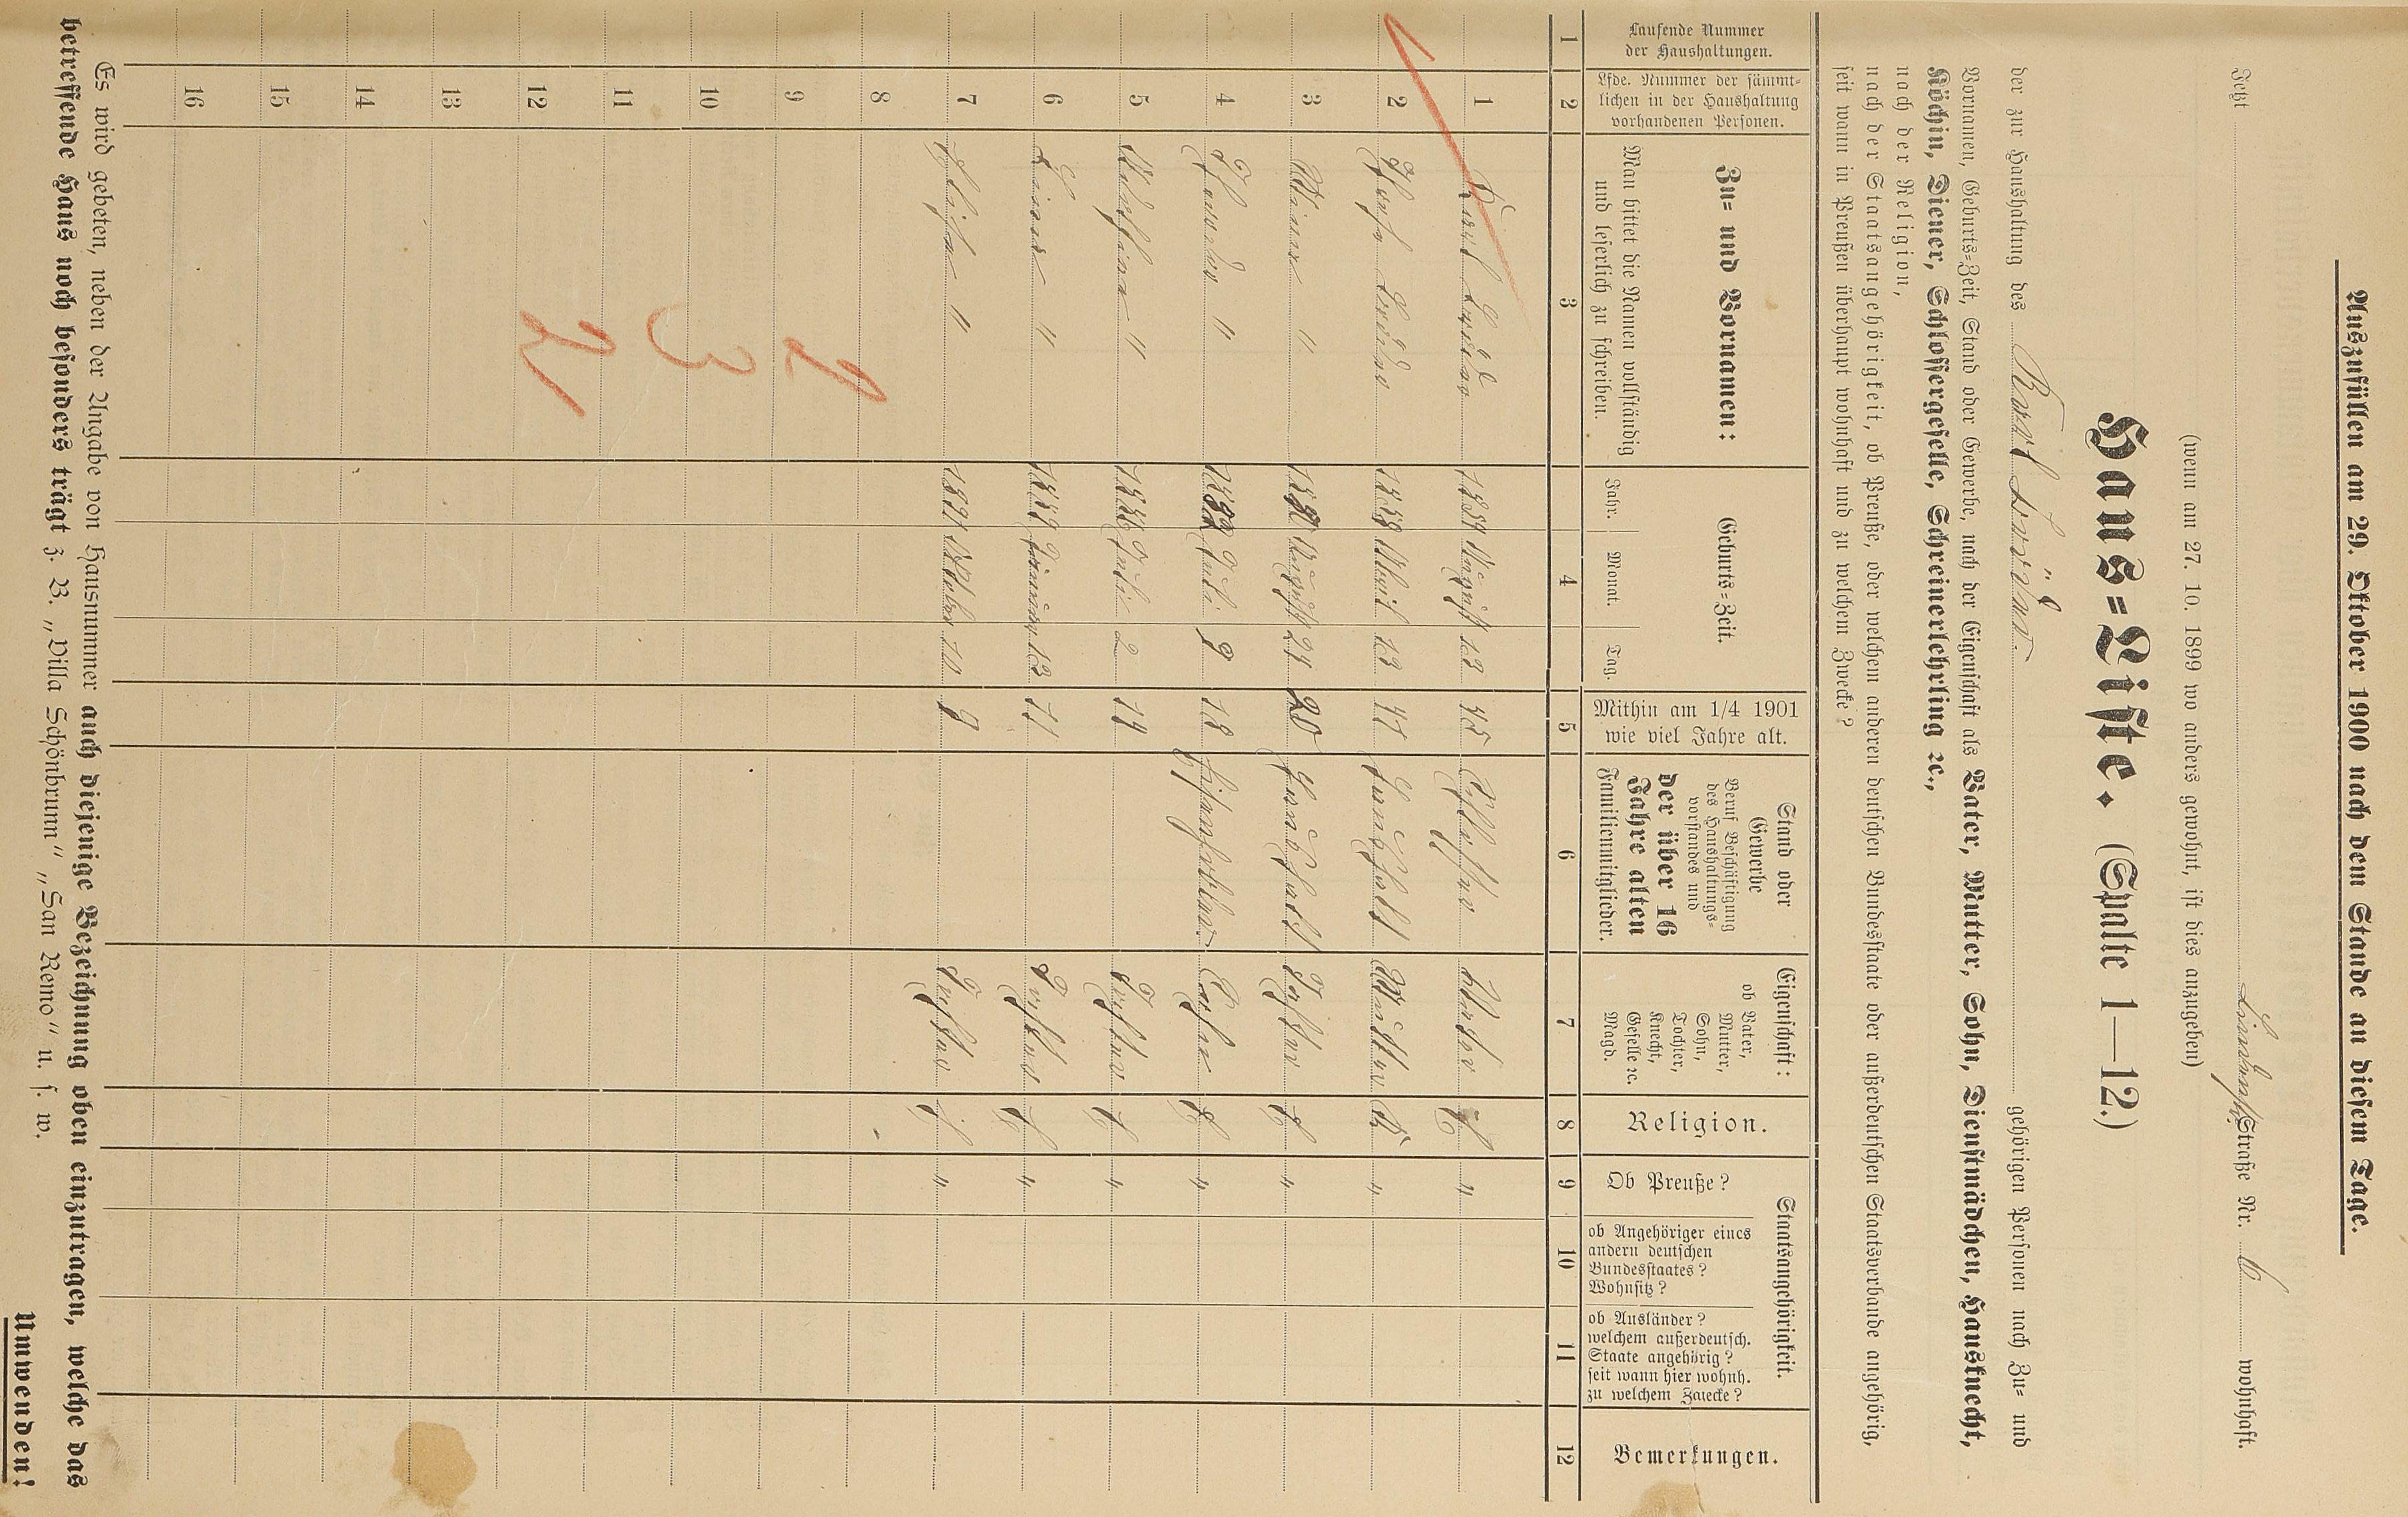 Auszufüllen am 29. Oktober 1900 nach dem Stande an diesem Tage.
Jetzt Straße Nr. 6 wohnhaft.
(wenn am 27. 10. 1899 wo anders gewohnt, ist dies anzugeben)
Haus=Liste. (Spalte 1—12.)
der zur Haushaltung des Karl gehörigen Personen nach Zu= und
Vornamen, Geburts=Zeit, Stand oder Gewerbe, nach der Eigenschaft als Vater, Mutter, Sohn, Dienstmädchen, Hausknecht,
Köchin, Diener, Schlossergeselle, Schreinerlehrling ꝛc.,
nach der Religion,
nach der Staatsangehörigkeit, ob Preuße, oder welchem anderen deutschen Bundesstaate oder außerdeutschen Staatsverbande angehörig,
seit wann in Preußen überhaupt wohnhaft und zu welchem Zwecke?
Laufende Nummer der Haushaltungen.
Lfde. Nummer der sämmt=
lichen in der Haushaltung
vorhandenen Personen.
Zu= und Vornamen:
Man bittet die Namen vollständig
und leserlich zu schreiben.
Geburts=Zeit.
Jahr. Monat. Tag.
Mithin am 1/4 1901
wie viel Jahre alt.
Stand oder
Gewerbe
Beruf Beschäftigung
des Haushaltungs=
vorstandes und
der über 16
Jahre alten
Familienmitglieder.
Eigenschaft:
ob Vater,
Mutter,
Sohn,
Tochter,
Knecht,
Geselle ꝛc.
Magd.
Religion.
Staatsangehörigkeit.
Ob Preuße?
ob Angehöriger eines
andern deutschen
Bundesstaates?
Wohnsitz?
ob Ausländer?
welchem außerdeutsch.
Staate angehörig?
seit wann hier wohnh.
zu welchem Zwecke?
Bemerkungen.
1 2 3 4 5 6 7 8 9 10 11 12
1 Karl August 13 45 Schlosser Vater "
2 April 13 41 Haushalt Mutter "
3 " August 24 20 Haushalt Tochter "
4 " Juli 9 18 "
5 " Juli 2 14 Tochter "
6 " Januar 13 11 Tochter "
7 " 1891 10 9 Tochter "
8
9
10
11
12
13
14
15
16
Es wird gebeten, neben der Angabe von Hausnummer auch diejenige Bezeichnung oben einzutragen, welche das
betreffende Haus noch besonders trägt z. B. „Villa Schönbrunn" „San Remo" u. s. w.
Umwenden!